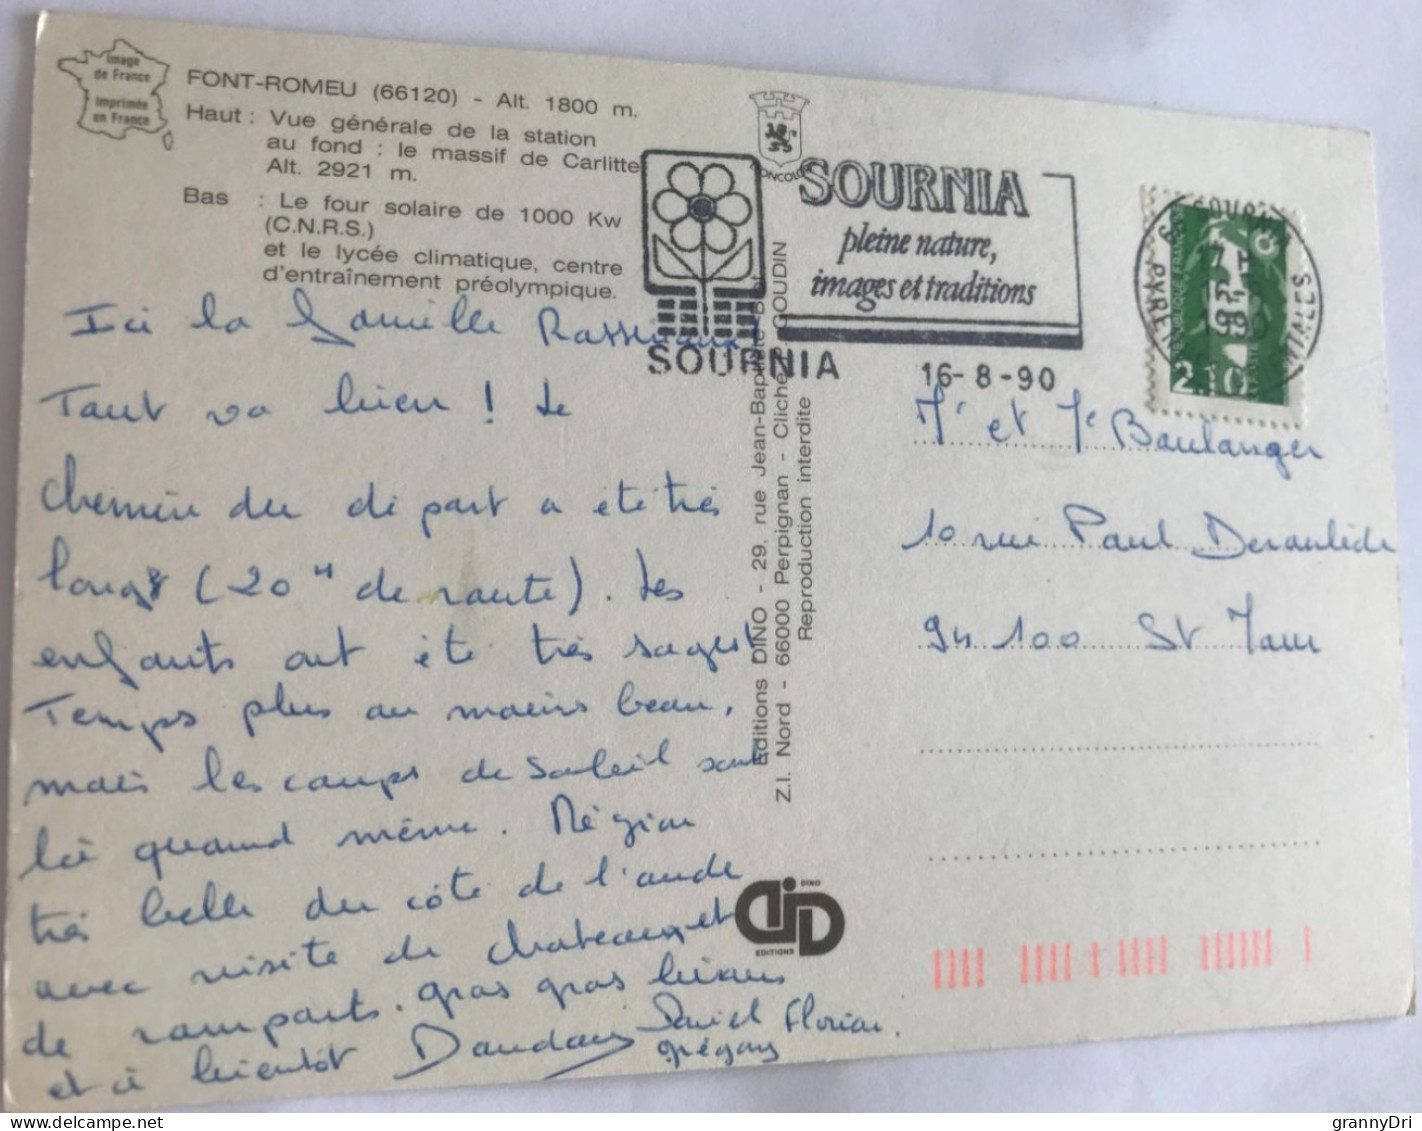 Image
de France
Imprimée
en France
FONT-ROMEU (66120) - Alt. 1800 m.
Haut : Vue générale de la station
au fond : le massif de Carlitte
Alt. 2921 m.
Bas : Le four solaire de 1000 Kw
(C.N.R.S.)
et le lycée climatique, centre
d'entraînement préolympique.
Ici la famille
Tout va bien ! Le
chemin du départ a été très
long (20 H de route). Les
enfants ont été très sages
Temps plus ou moins beau,
mais les coups de soleil sont
là quand même. Région
très belle du côté de l'aude
avec visite de chateaux et
de remparts. gros gros bisous
et à bientôt Daniel Florian.
Grégory
Editions DINO - 29, rue Jean-Baptiste
Z.I. Nord - 66000 Perpignan - Cliché GOUDIN
Reproduction interdite
DINO
EDITIONS
SOURNIA
pleine nature,
images et traditions
SOURNIA
16-8-90
17 H
1990
REPUBLIQUE FRANÇAISE
2.10
Mr et Me Boulanger
10 rue Paul Deroulède
94100 St Maur
grannyDri